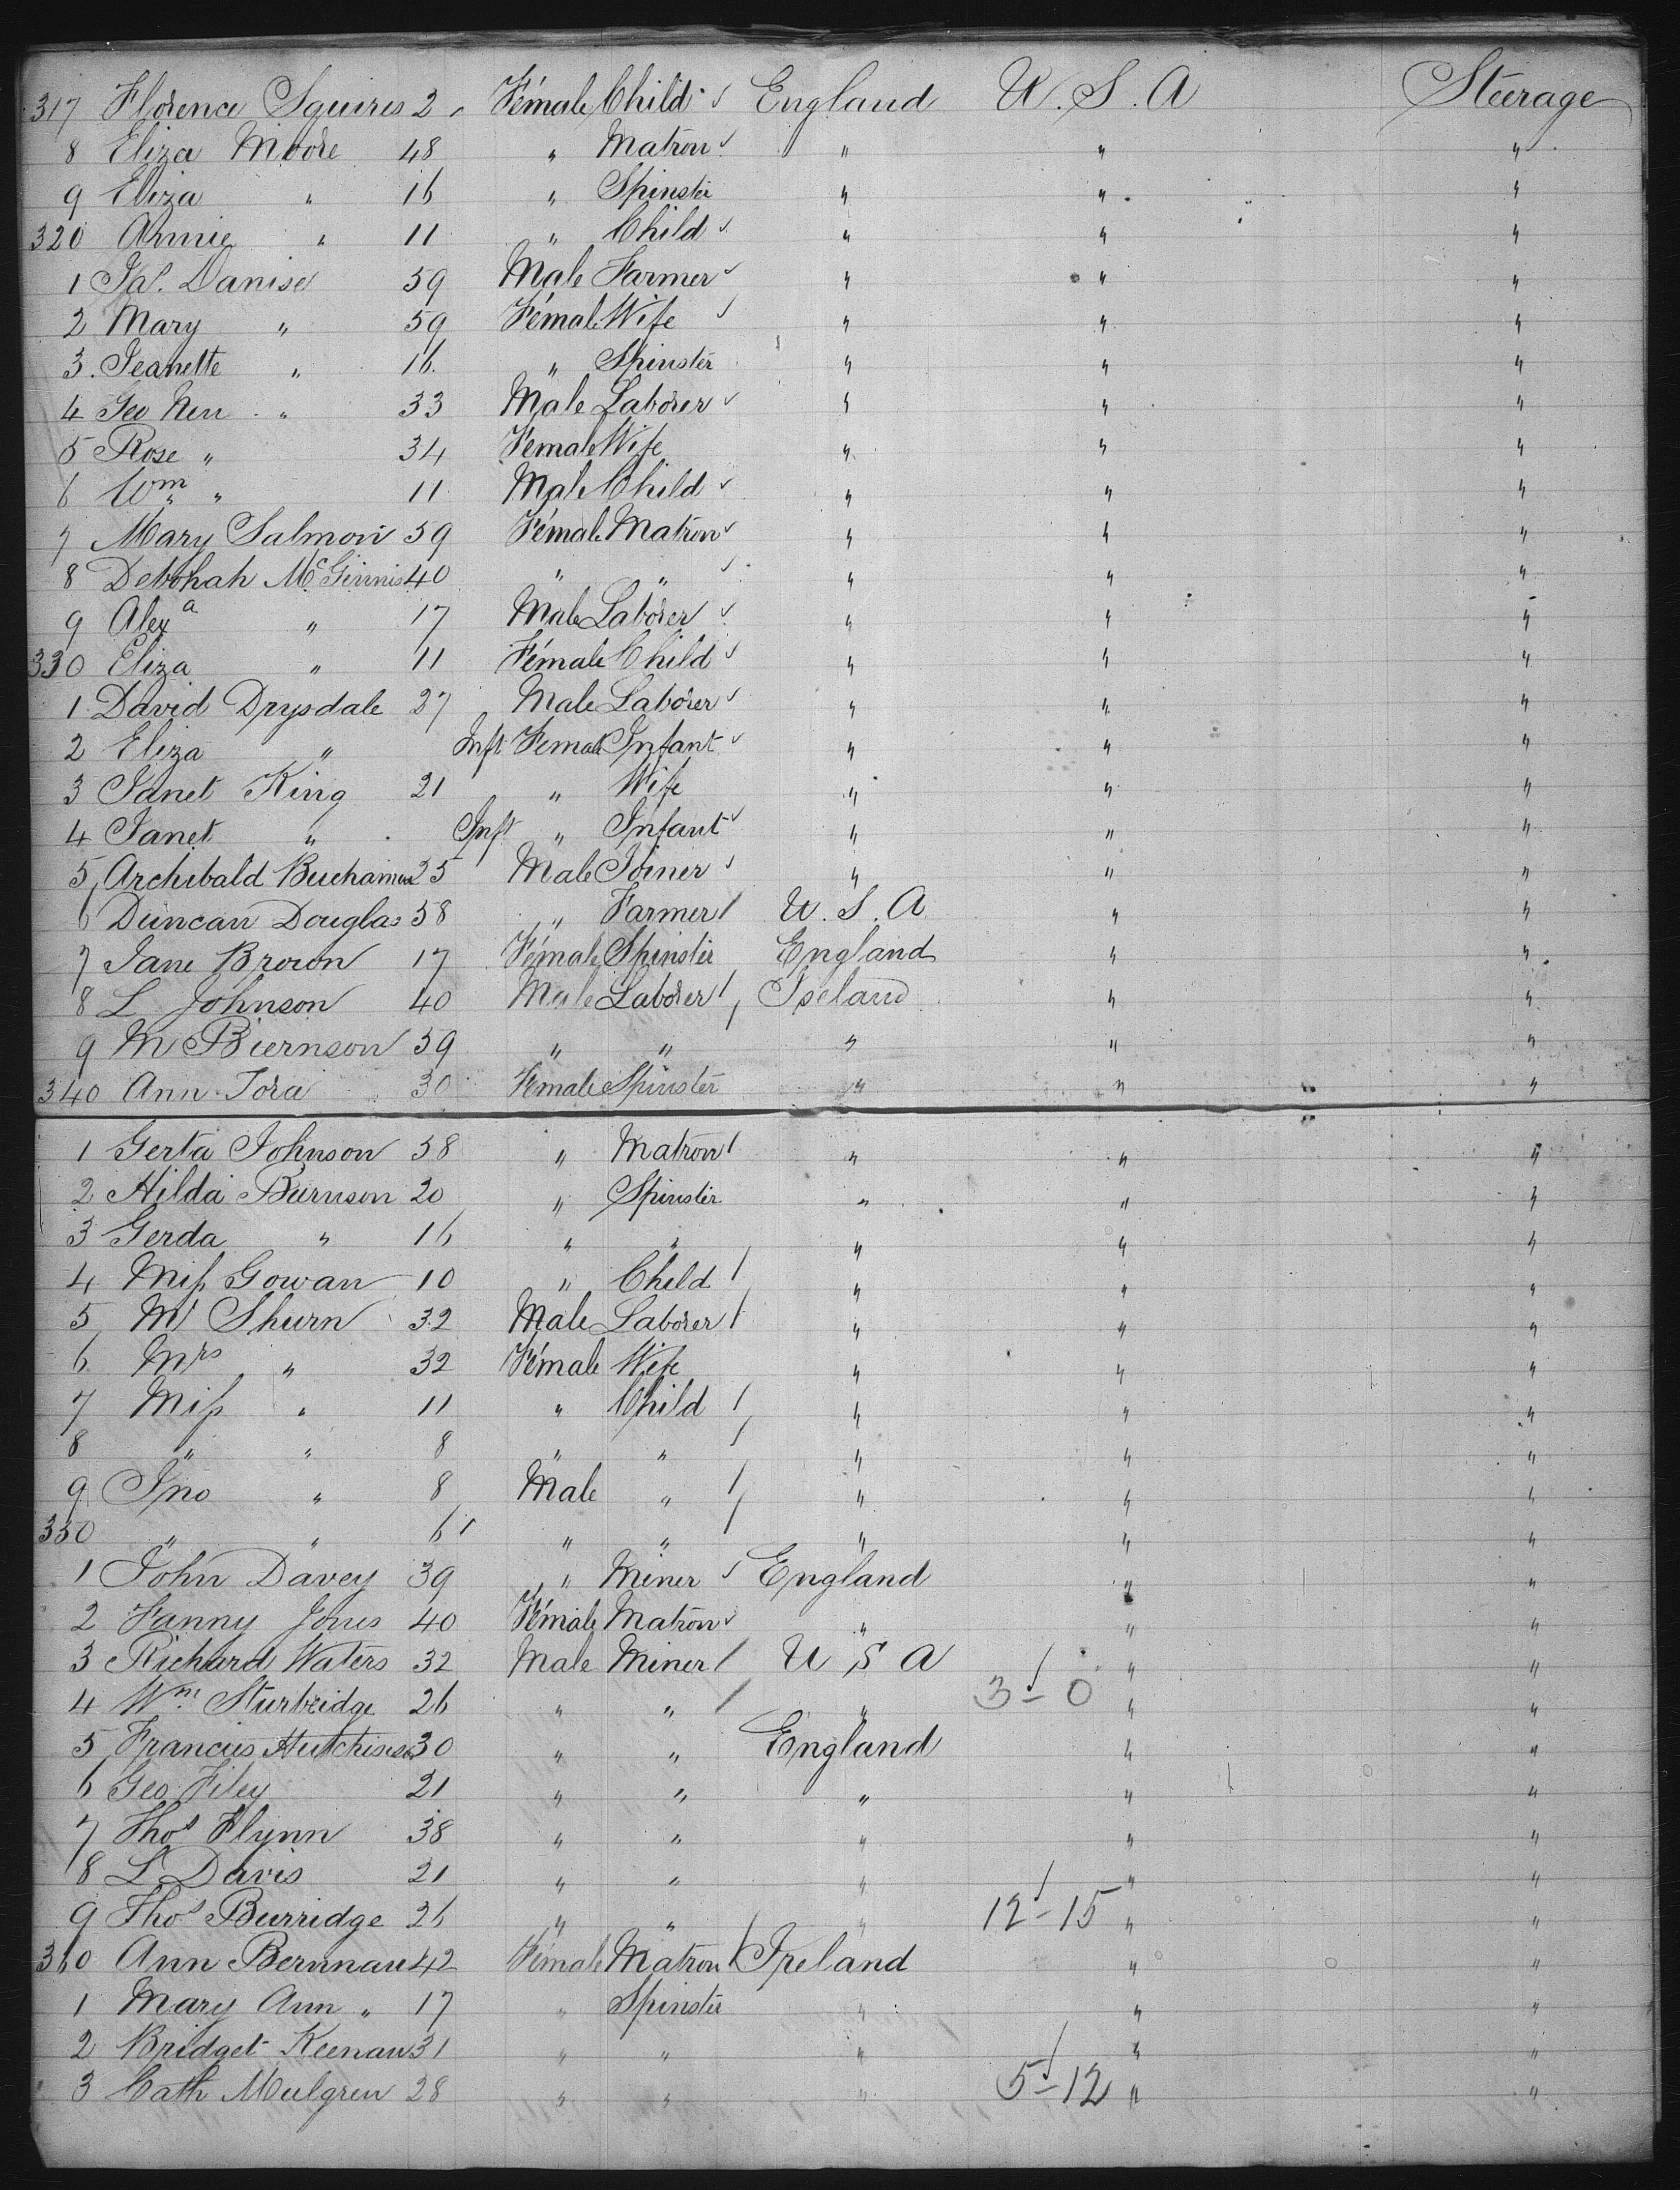 317 Florence Squires 2 Female Child England U.S.A Steerage
8 Eliza Moore 48 " Matron " " "
9 Eliza " 16 " Spinster " " "
320 Annie " 11 " Child " " "
1 Jas. Danise 59 Male Farmer " " "
2 Mary " 59 Female Wife " " "
3. Jeanette " 16. " Spinster " " "
4 Geo " 33 Male Laborer " " "
5 Rose " 34 Female Wife " " "
6 Wm " 11 Male Child " " "
7 Mary Salmon 59 Female Matron " " "
8 Debohah McGinnis 40 " " " " "
9 Alexa " 17 Male Laborer " " "
330 Eliza " 11 Female Child " " "
1 David Drysdale 27 Male Laborer " " "
2 Eliza " Inft Female Infant " " "
3 Janet King 21 " Wife " " "
4 Janet " Inft " Infant " " "
5 Archibald 25 Male Joiner " " "
6 Duncan Douglas 58 " Farmer U.S.A " "
7 Jane Brown 17 Female Spinster England " "
8 L Johnson 40 Male Laborer Iseland " "
9 M Biernson 59 " " " " "
340 Ann Tora 30 Female Spinster " " "
1 Gerta Johnson 58 " Matron " " "
2 Hilda Burnson 20 " Spinster " " "
3 Gerda " 16 " " " " "
4 Miss Gowan 10 " Child " " "
5 Mr Shurn 32 Male Laborer " " "
6 Mrs " 32 Female Wife " " "
7 Miss " 11 " Child " " "
8 " " 8 " " " " "
9 Jno " 8 Male " " " "
350 " " 6 " " " " "
1 John Davey 39 " Miner England " "
2 Fanny Jones 40 Female Matron " " "
3 Richard Waters 32 Male Miner U S A " "
4 Wm Sturbridge 26 " " " 3-0 " "
5 Francis 30 " " England " "
6 Geo Filey 21 " " " " "
7 Thos Flynn 38 " " " " "
8 L Davis 21 " " " " "
9 Thos Burridge 26 " " " 12-15 " "
360 Ann 42 Female Matron Ireland " "
1 Mary Ann " 17 " Spinster " " "
2 Bridget Keenan 31 " " " " "
3 Cath Mulgren 28 " " " 5-12 " "